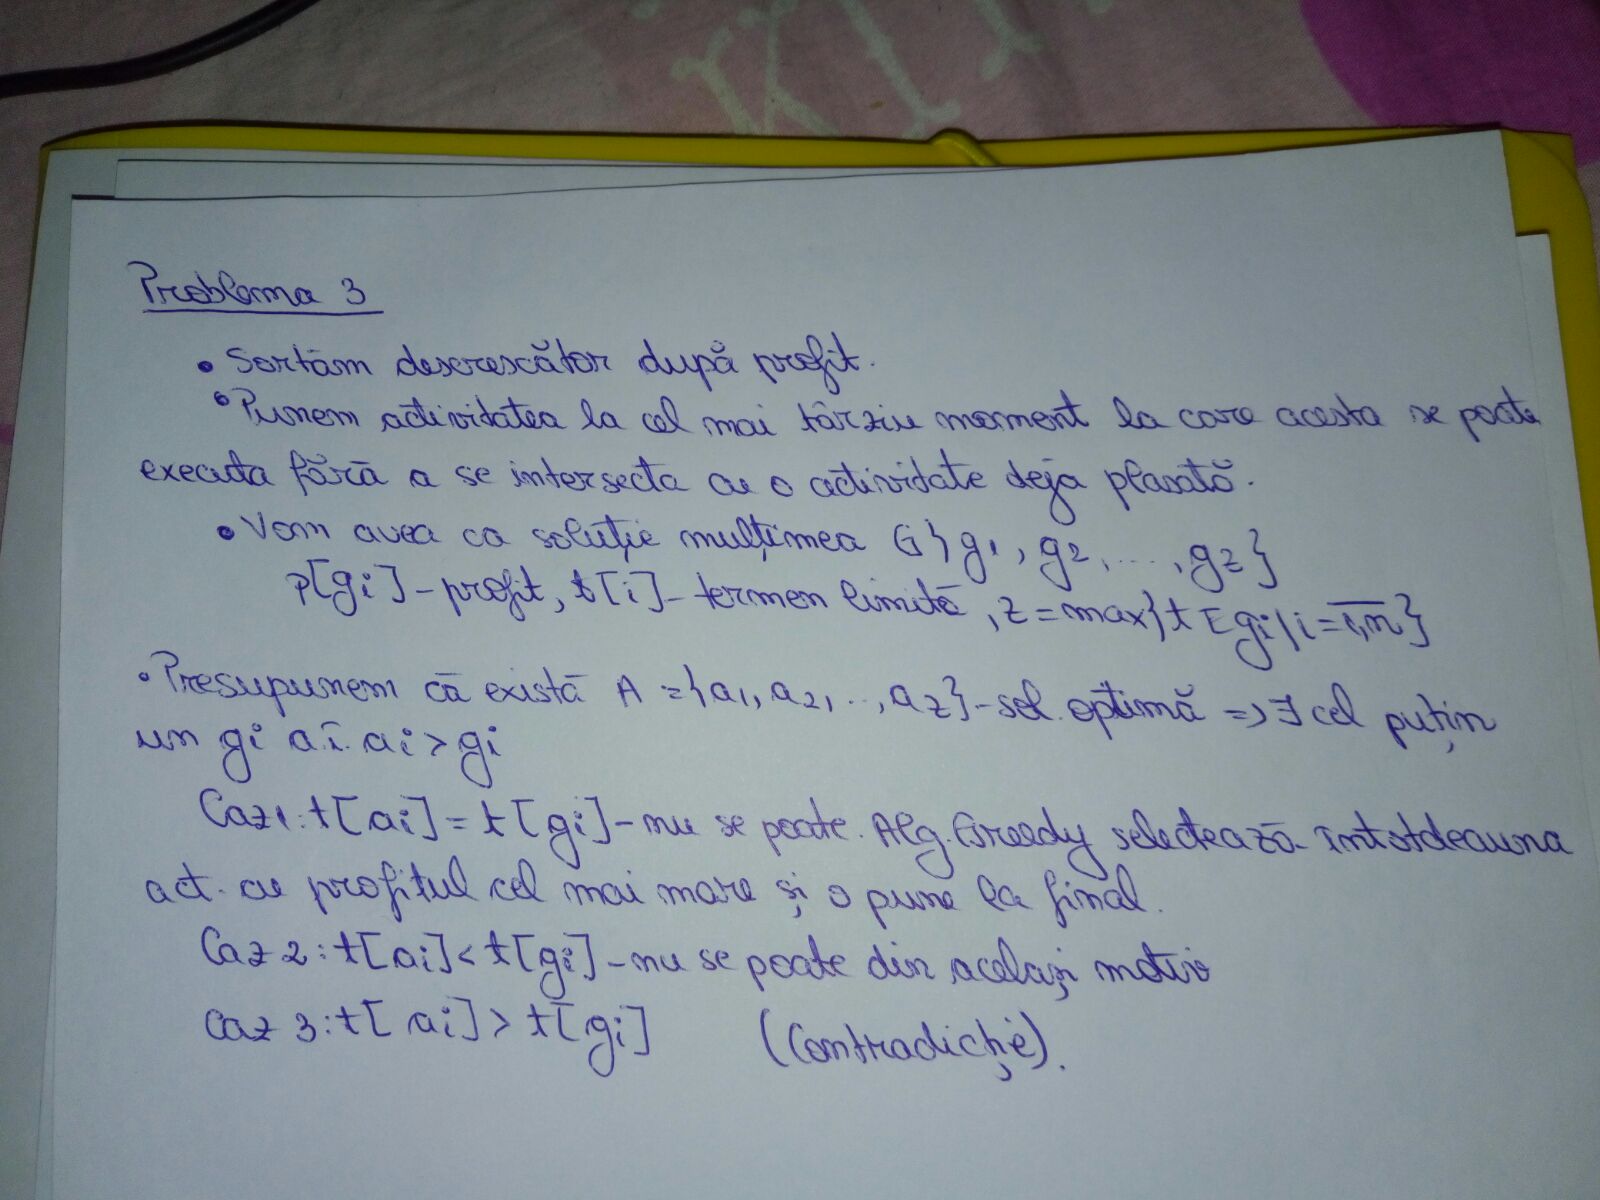 Problema 3
• Sortăm descrescător după profit.
• Punem activitatea la cel mai târziu moment la care acesta se poate
executa fără a se intersecta cu o activitate deja plasată.
• Vom avea ca soluție mulțimea G{g1, g2, ..., gz}
p[gi] - profit, t[i] - termen limită, z = max{t[gi|i=1,n}
• Presupunem că există A = {a1, a2, .., az} - sol. optimă => ∃ cel puțin
un gi a.î. ai > gi
Caz 1: t[ai] = t[gi] - nu se poate. Alg. Greedy selectează întotdeauna
act. cu profitul cel mai mare și o pune la final.
Caz 2: t[ai] < t[gi] - nu se poate din același motiv
Caz 3: t[ai] > t[gi] (Contradicție).